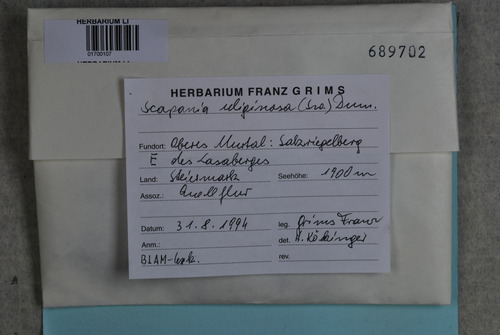 HERBARIUM LI
01700107
689702
HERBARIUM FRANZ GRIMS
Scapania uliginosa (Sw.) Dum.
Fundort: Oberes Murtal: Salzriegelberg
E des Lasaberges
Land: Steiermark Seehöhe: 1900m
Assoz.: Quellflur
Datum: 31.8.1994 leg. Grims Franz
Anm.: det. H. Köckinger
BLAM-Exk. rev.